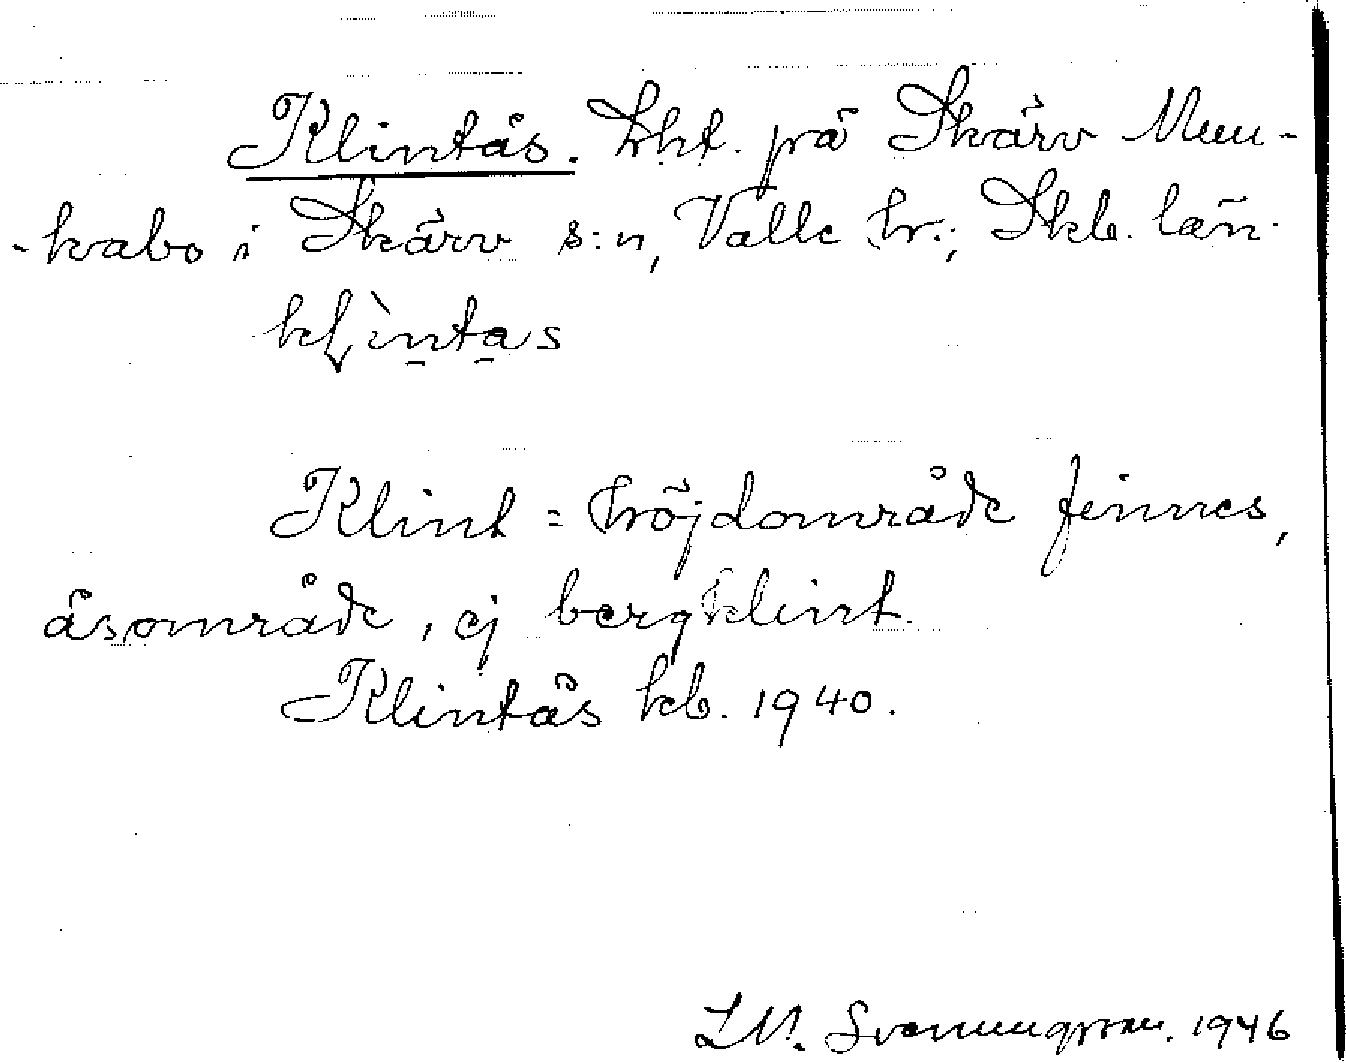 Klintås. Lht. på Skärv Mun-
-kabo i Skärv s:n, Valle hr.; Skb. län.
klìntas
Klint = höjdområde finnes,
åsområde, ej bergklint.
Klintås kb. 1940.
1946